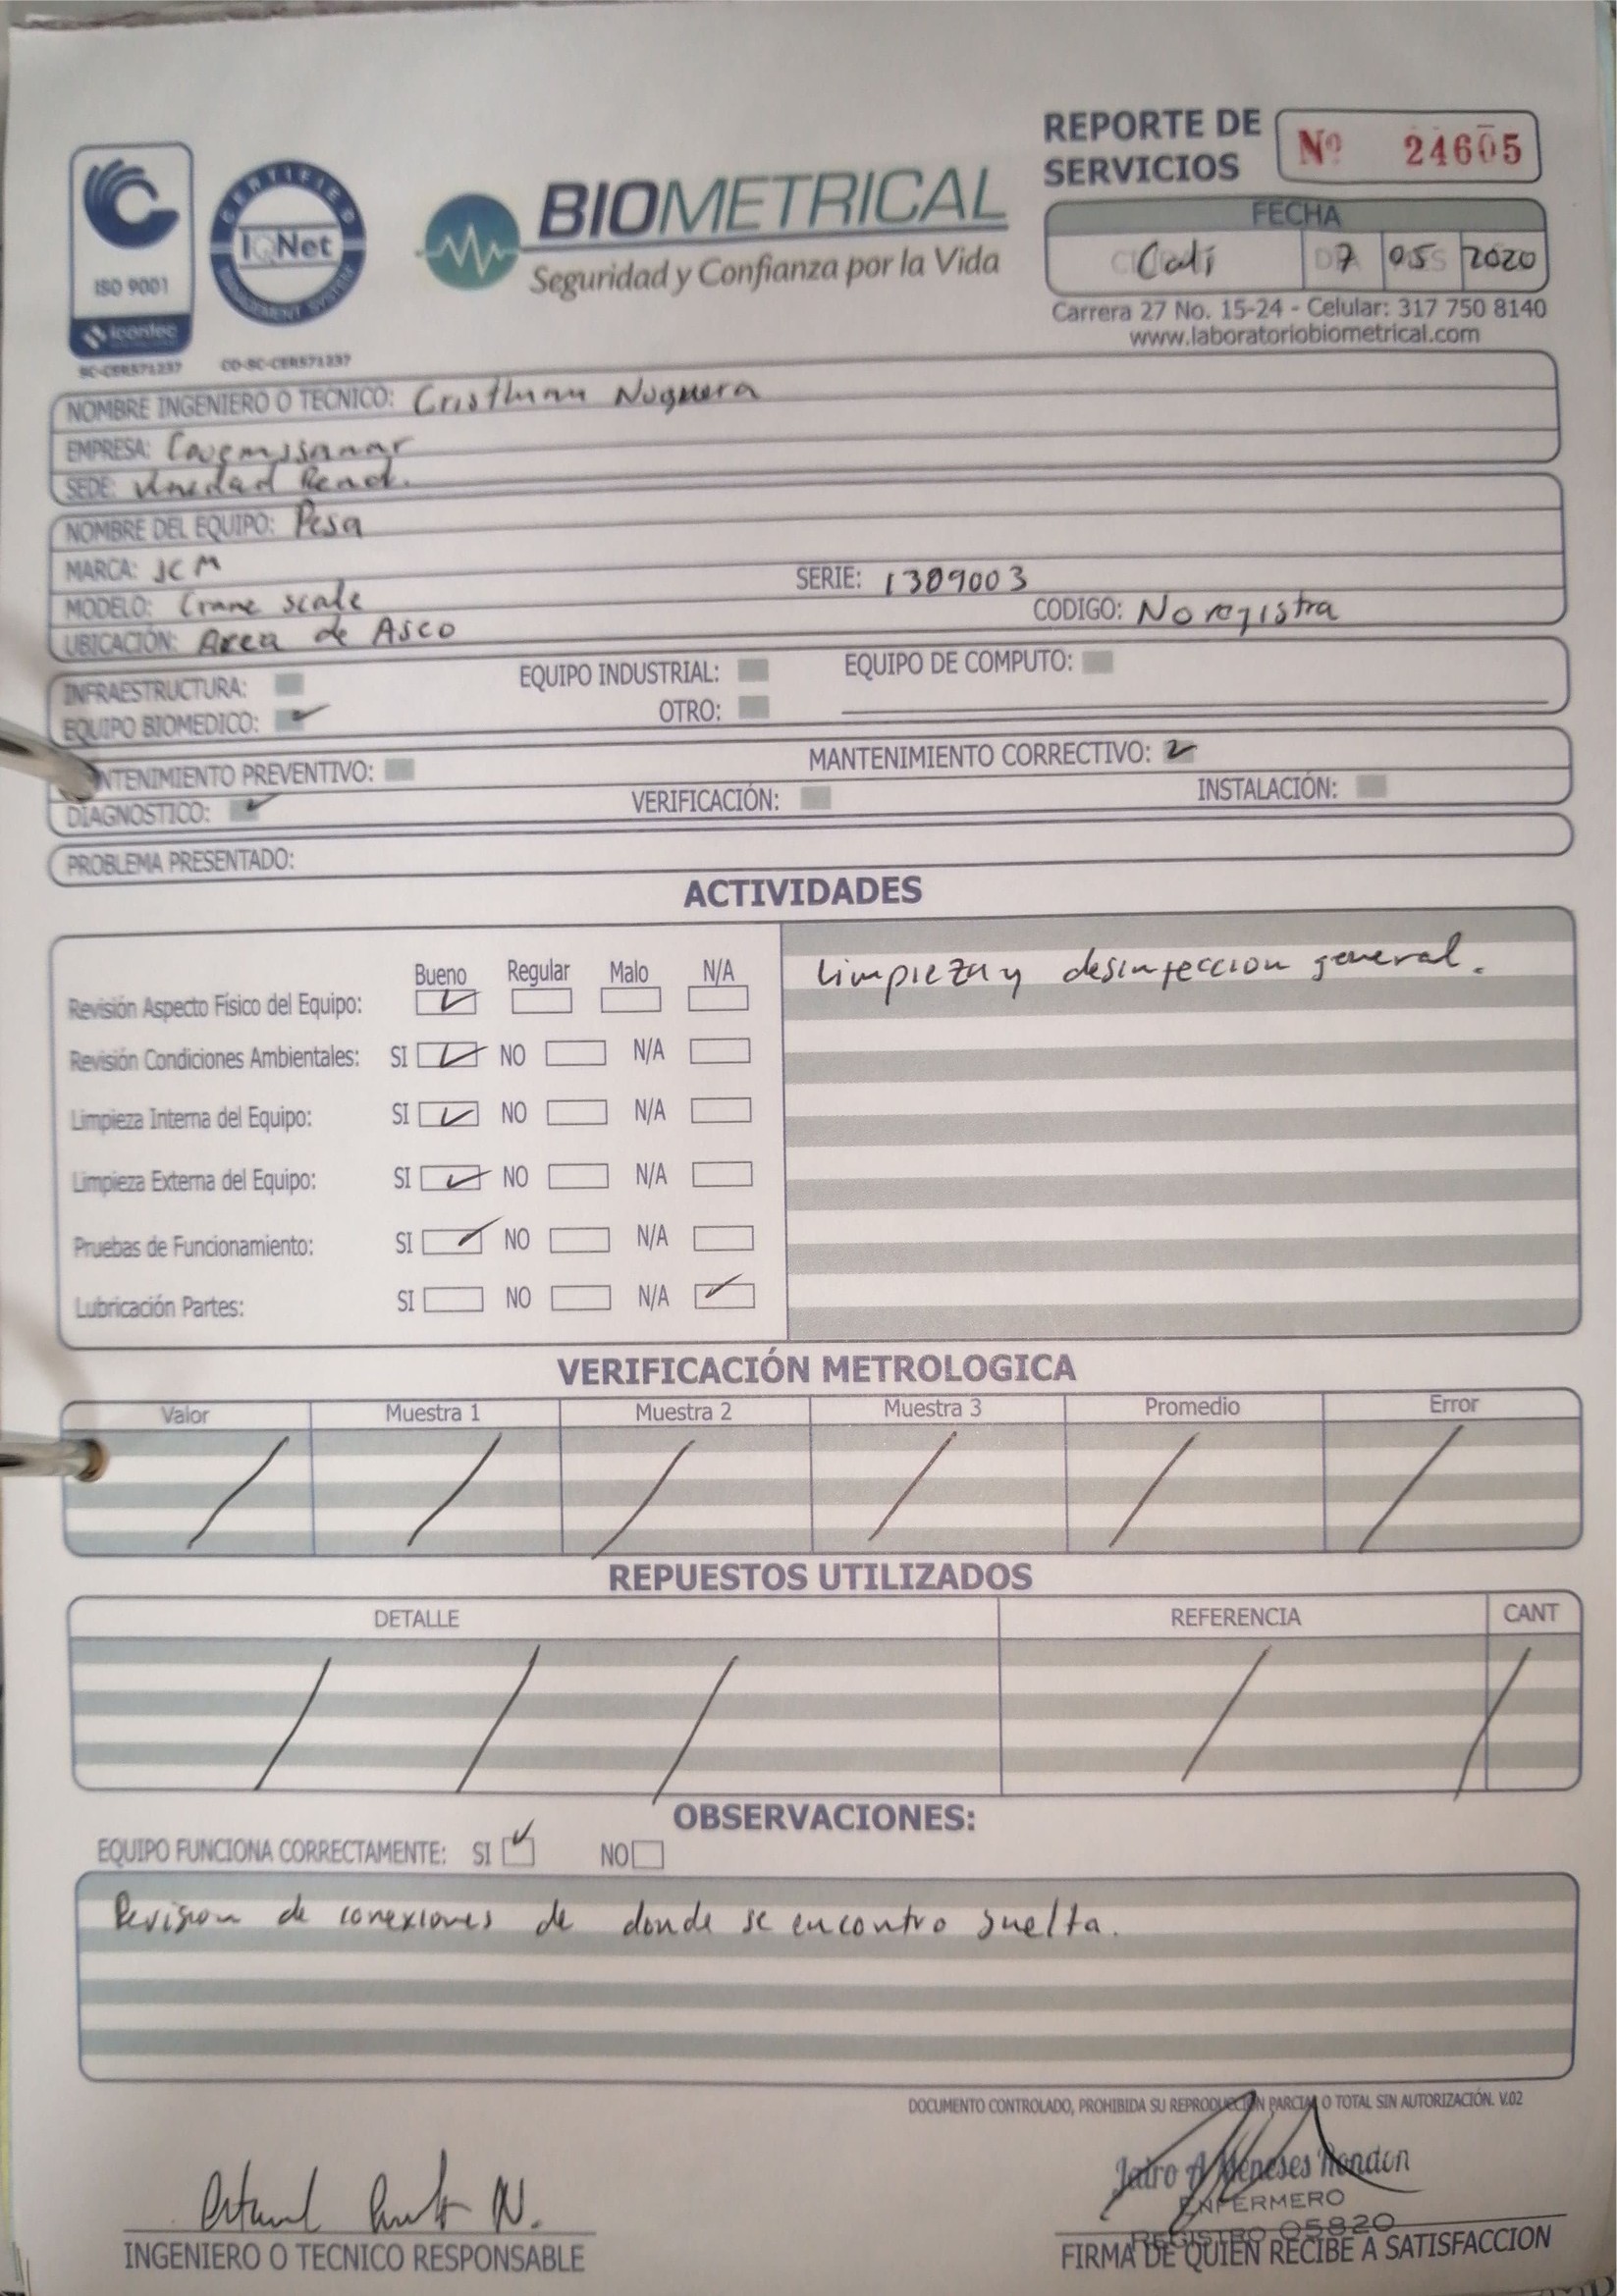 REPORTE DE
SERVICIOS
Nº 24605
ISO 9001
icontec
SC-CER571237
CERTIFIED
IQNet
MANAGEMENT SYSTEM
CO-SC-CER571237
BIOMETRICAL
Seguridad y Confianza por la Vida
FECHA
Cali 7 05 2020
Carrera 27 No. 15-24 - Celular: 317 750 8140
www.laboratoriobiometrical.com
NOMBRE INGENIERO O TECNICO: Cristhian Noguera
EMPRESA:
SEDE: Unidad Renal.
NOMBRE DEL EQUIPO: Pesa
MARCA: JCM SERIE: 1309003
MODELO: Crane scale CODIGO: No registra
UBICACIÓN: Area de Aseo
INFRAESTRUCTURA: EQUIPO INDUSTRIAL: EQUIPO DE COMPUTO:
EQUIPO BIOMEDICO: ✓ OTRO:
NTENIMIENTO PREVENTIVO: MANTENIMIENTO CORRECTIVO: ✓
DIAGNOSTICO: ✓ VERIFICACIÓN: INSTALACIÓN:
PROBLEMA PRESENTADO:
ACTIVIDADES
Bueno Regular Malo N/A
Revisión Aspecto Físico del Equipo: ✓
Limpieza y desinfeccion general.
Revisión Condiciones Ambientales: SI ✓ NO N/A
Limpieza Interna del Equipo: SI ✓ NO N/A
Limpieza Externa del Equipo: SI ✓ NO N/A
Pruebas de Funcionamiento: SI ✓ NO N/A
Lubricación Partes: SI NO N/A ✓
VERIFICACIÓN METROLOGICA
Valor Muestra 1 Muestra 2 Muestra 3 Promedio Error
/ / / / / /
REPUESTOS UTILIZADOS
DETALLE REFERENCIA CANT
/ / / / /
OBSERVACIONES:
EQUIPO FUNCIONA CORRECTAMENTE: SI ✓ NO
Revision de conexiones de donde se encontro suelta.
DOCUMENTO CONTROLADO, PROHIBIDA SU REPRODUCCIÓN PARCIAL O TOTAL SIN AUTORIZACIÓN. V.02
Jairo A Meneses Rondon
ENFERMERO
REGISTRO 05820
INGENIERO O TECNICO RESPONSABLE
FIRMA DE QUIEN RECIBE A SATISFACCION